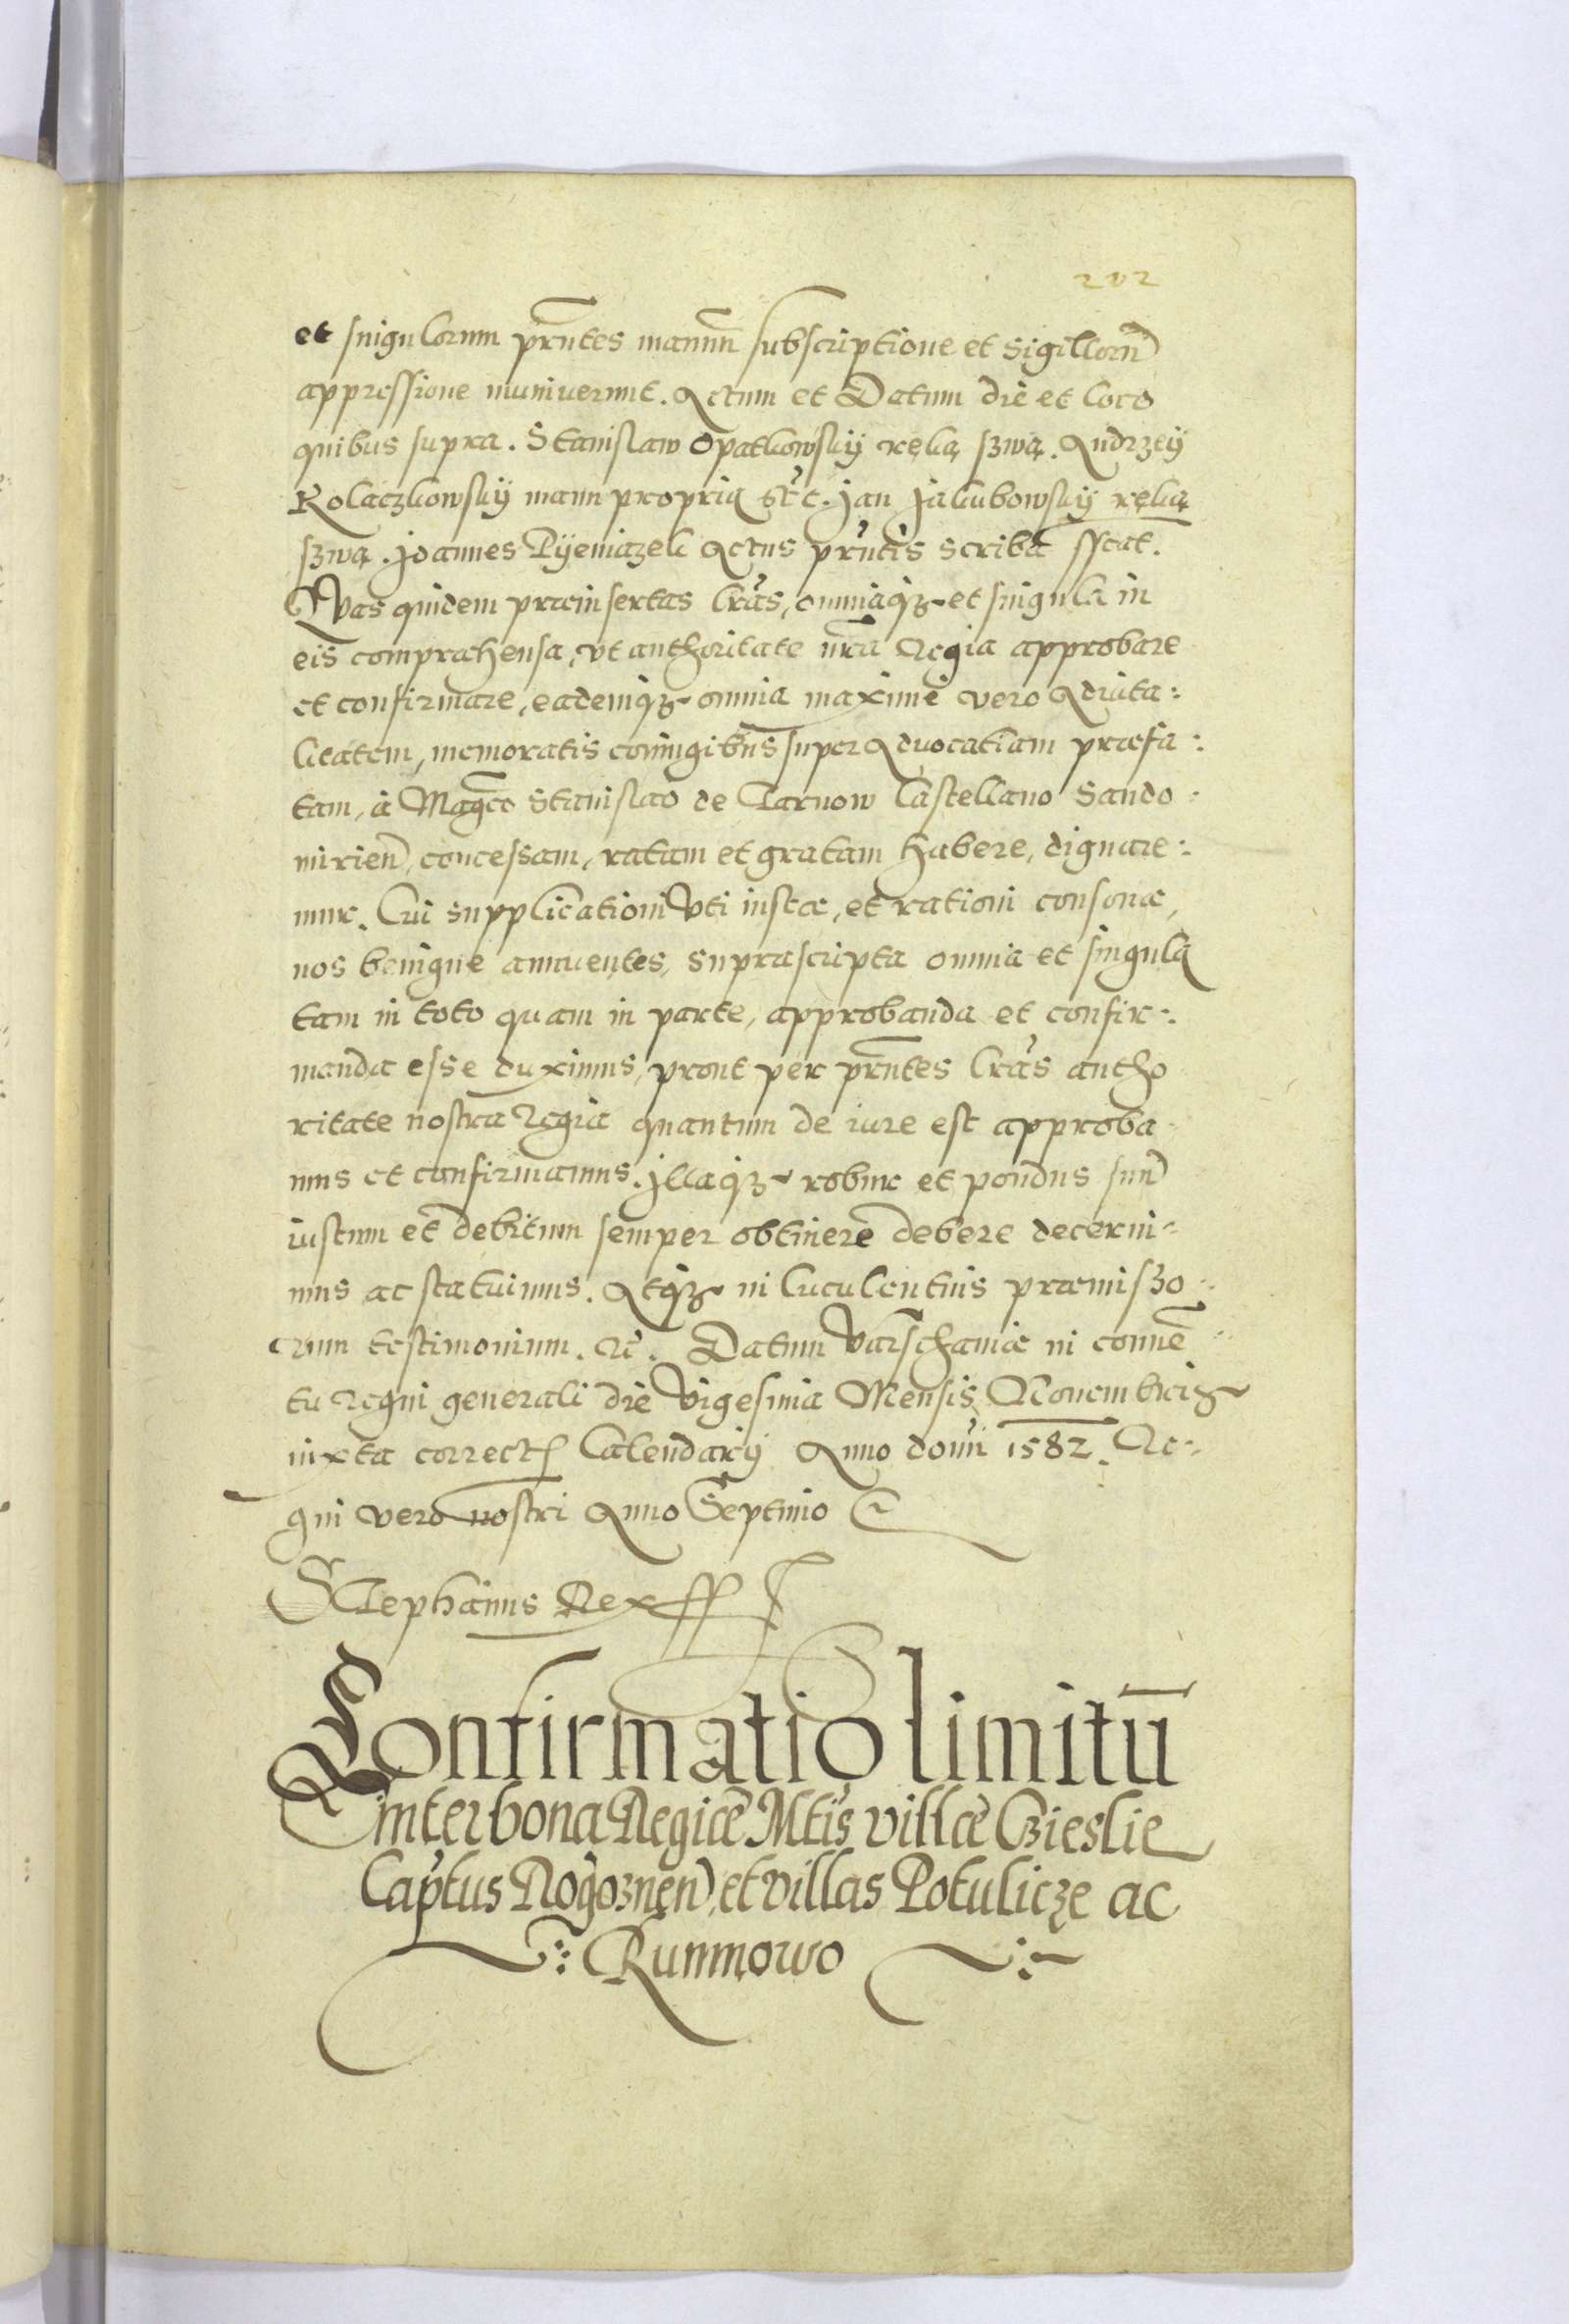 202
et singulorum prñtes manuũ subscriptione et sigillorũ
appressione muniuerunt. Actum et Datum die et loco
quibus supra. Stanislaw Opatkowskÿ ręką szwą. Andrzeÿ
Kolaczkowskÿ manu propria sst. Jan Jakubowskÿ ręką
szwą. Joannes Pÿeniązek Actus prñtis scriba sscat.
Quas quidem præinsertas lras, omniaqʒ et singula in
eis compræhensa, vt authoritate nra Regia approbare
et confirmare, eademqʒ omnia maxime vero Aduita:
litatem, memoratis coniugibus super Aduocatiam præfa:
tam, a Magco Stanislao de Tarnow Castellano Sando:
mirień concessam, ratam et gratam habere, dignare:
mur. Cui supplicationi vti iustæ, et rationi consonæ,
nos benigne annuentes, suprascripta omnia et singula
tam in toto quam in parte, approbanda et confir:
manda esse duximus, prout per prñtes lras autho
ritate nostra Regia quantum de iure est approba
mus et confirmamus. Illaqʒ robur et pondus suũ
iustum et debitum semper obtinere debere decerni:
mus ac statuimus. Atqʒ in luculentius præmisso:
rum testimonium. Rc. Datum Varschauiæ in conuẽ:
tu regni generali die Vigesima Mensis Nouembris
iuxta correct Calendarÿ Anno domi 1582. Re:
gni vero nostri Anno Septimo
Stephanus Rex ss
Confirmatio limitū
inter bona Regiæ Mtis villæ Czieslie
Captus Rogoznen, et villas Potulicze ac
Runnowo